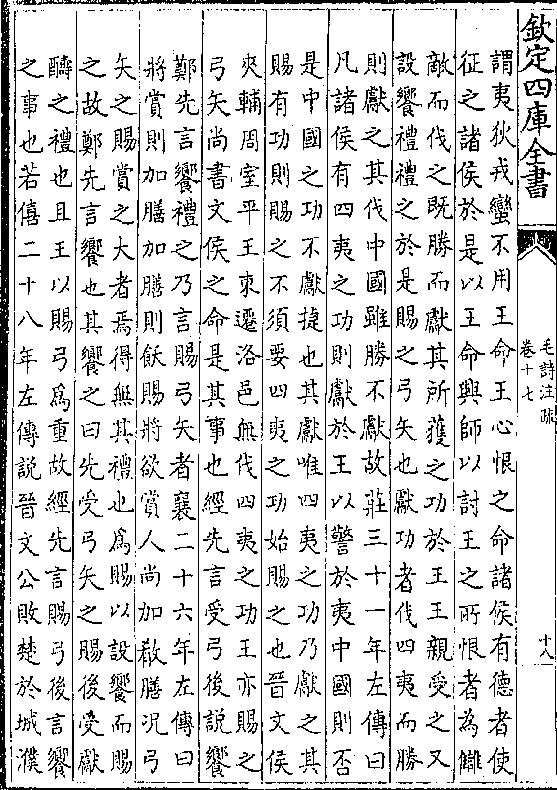 欽定四庫全書
毛詩注疏
卷十七
十八
謂夷狄戎蠻不用王命王心恨之命諸侯有德者使
征之諸侯於是以王命興師以討王之所恨者為讎
敵而伐之既勝而獻其所獲之功於王王親受之又
設饗禮禮之於是賜之弓矢也獻功者伐四夷而勝
則獻之其伐中國雖勝不獻故莊三十一年左傳曰
凡諸侯有四夷之功則獻於王以警於夷中國則否
是中國之功不獻捷也其獻唯四夷之功乃獻之其
賜有功則賜之不須要四夷之功始賜之也晉文侯
夾輔周室平王東遷洛邑無伐四夷之功王亦賜之
弓矢尚書文侯之命是其事也經先言受弓後說饗
鄭先言饗禮之乃言賜弓矢者襄二十六年左傳曰
將賞則加膳加膳則飫賜將欲賞人尚加殽膳況弓
矢之賜賞之大者焉得無其禮也為賜以設饗而賜
之故鄭先言饗也其饗之日先受弓矢之賜後受獻
醻之禮也且王以賜弓為重故經先言賜弓後言饗
之事也若僖二十八年左傳說晉文公敗楚於城濮